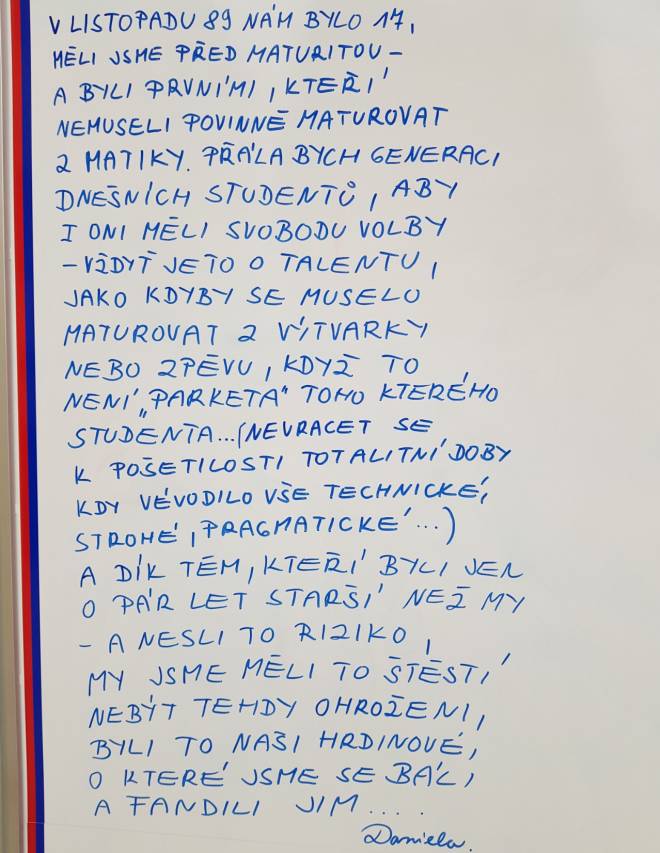 V LISTOPADU 89 NÁM BYLO 17,
MĚLI JSME PŘED MATURITOU –
A BYLI PRVNÍMI, KTEŘÍ
NEMUSELI POVINNĚ MATUROVAT
Z MATIKY. PŘÁLA BYCH GENERACI
DNEŠNÍCH STUDENTŮ, ABY
I ONI MĚLI SVOBODU VOLBY
– VŽDYŤ JE TO O TALENTU,
JAKO KDYBY SE MUSELO
MATUROVAT Z VÝTVARKY
NEBO ZPĚVU, KDYŽ TO
NENÍ „PARKETA" TOHO KTERÉHO
STUDENTA...(NEVRACET SE
K POŠETILOSTI TOTALITNÍ DOBY
KDY VÉVODILO VŠE TECHNICKÉ,
STROHÉ, PRAGMATICKÉ...)
A DÍK TĚM, KTEŘÍ BYLI JEN
O PÁR LET STARŠÍ NEŽ MY
– A NESLI TO RIZIKO,
MY JSME MĚLI TO ŠTĚSTÍ
NEBÝT TEHDY OHROŽENI,
BYLI TO NAŠI HRDINOVÉ,
O KTERÉ JSME SE BÁLI
A FANDILI JIM....
Daniela.